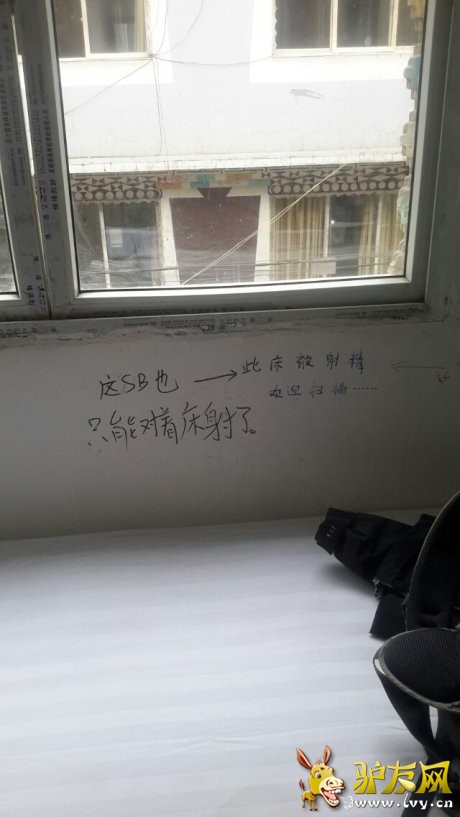 此床被射精
欢迎扫描……
这SB也 →
只能对着床射了。
驴友网
www.lvy.cn